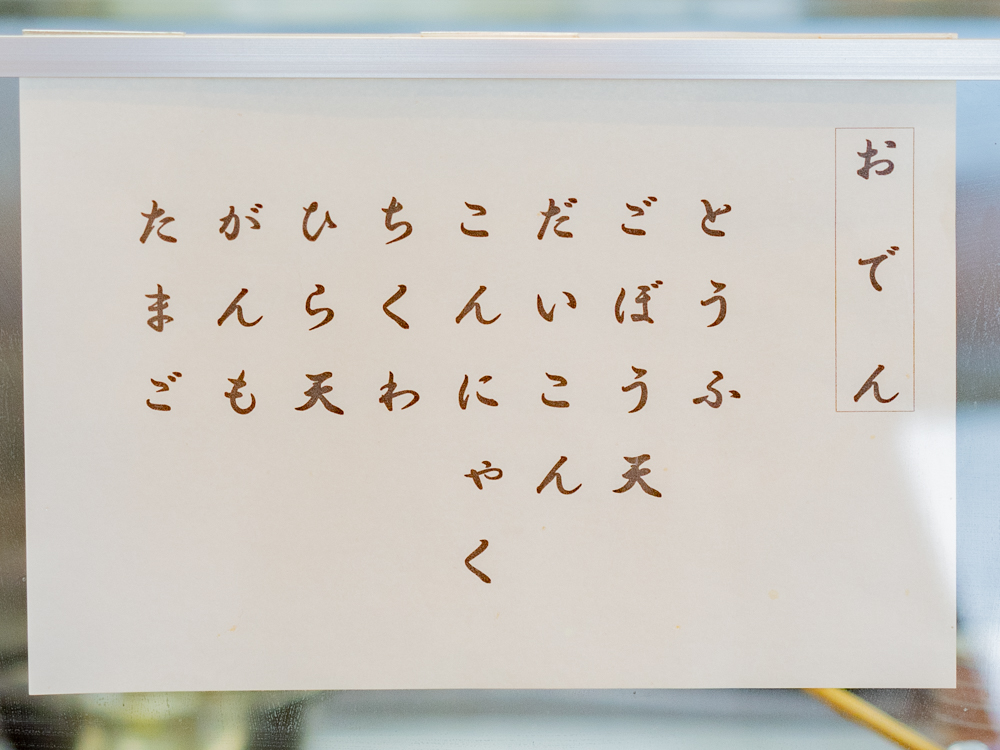 おでん
とうふ
ごぼう天
だいこん
こんにゃく
ちくわ
ひら天
がんも
たまご